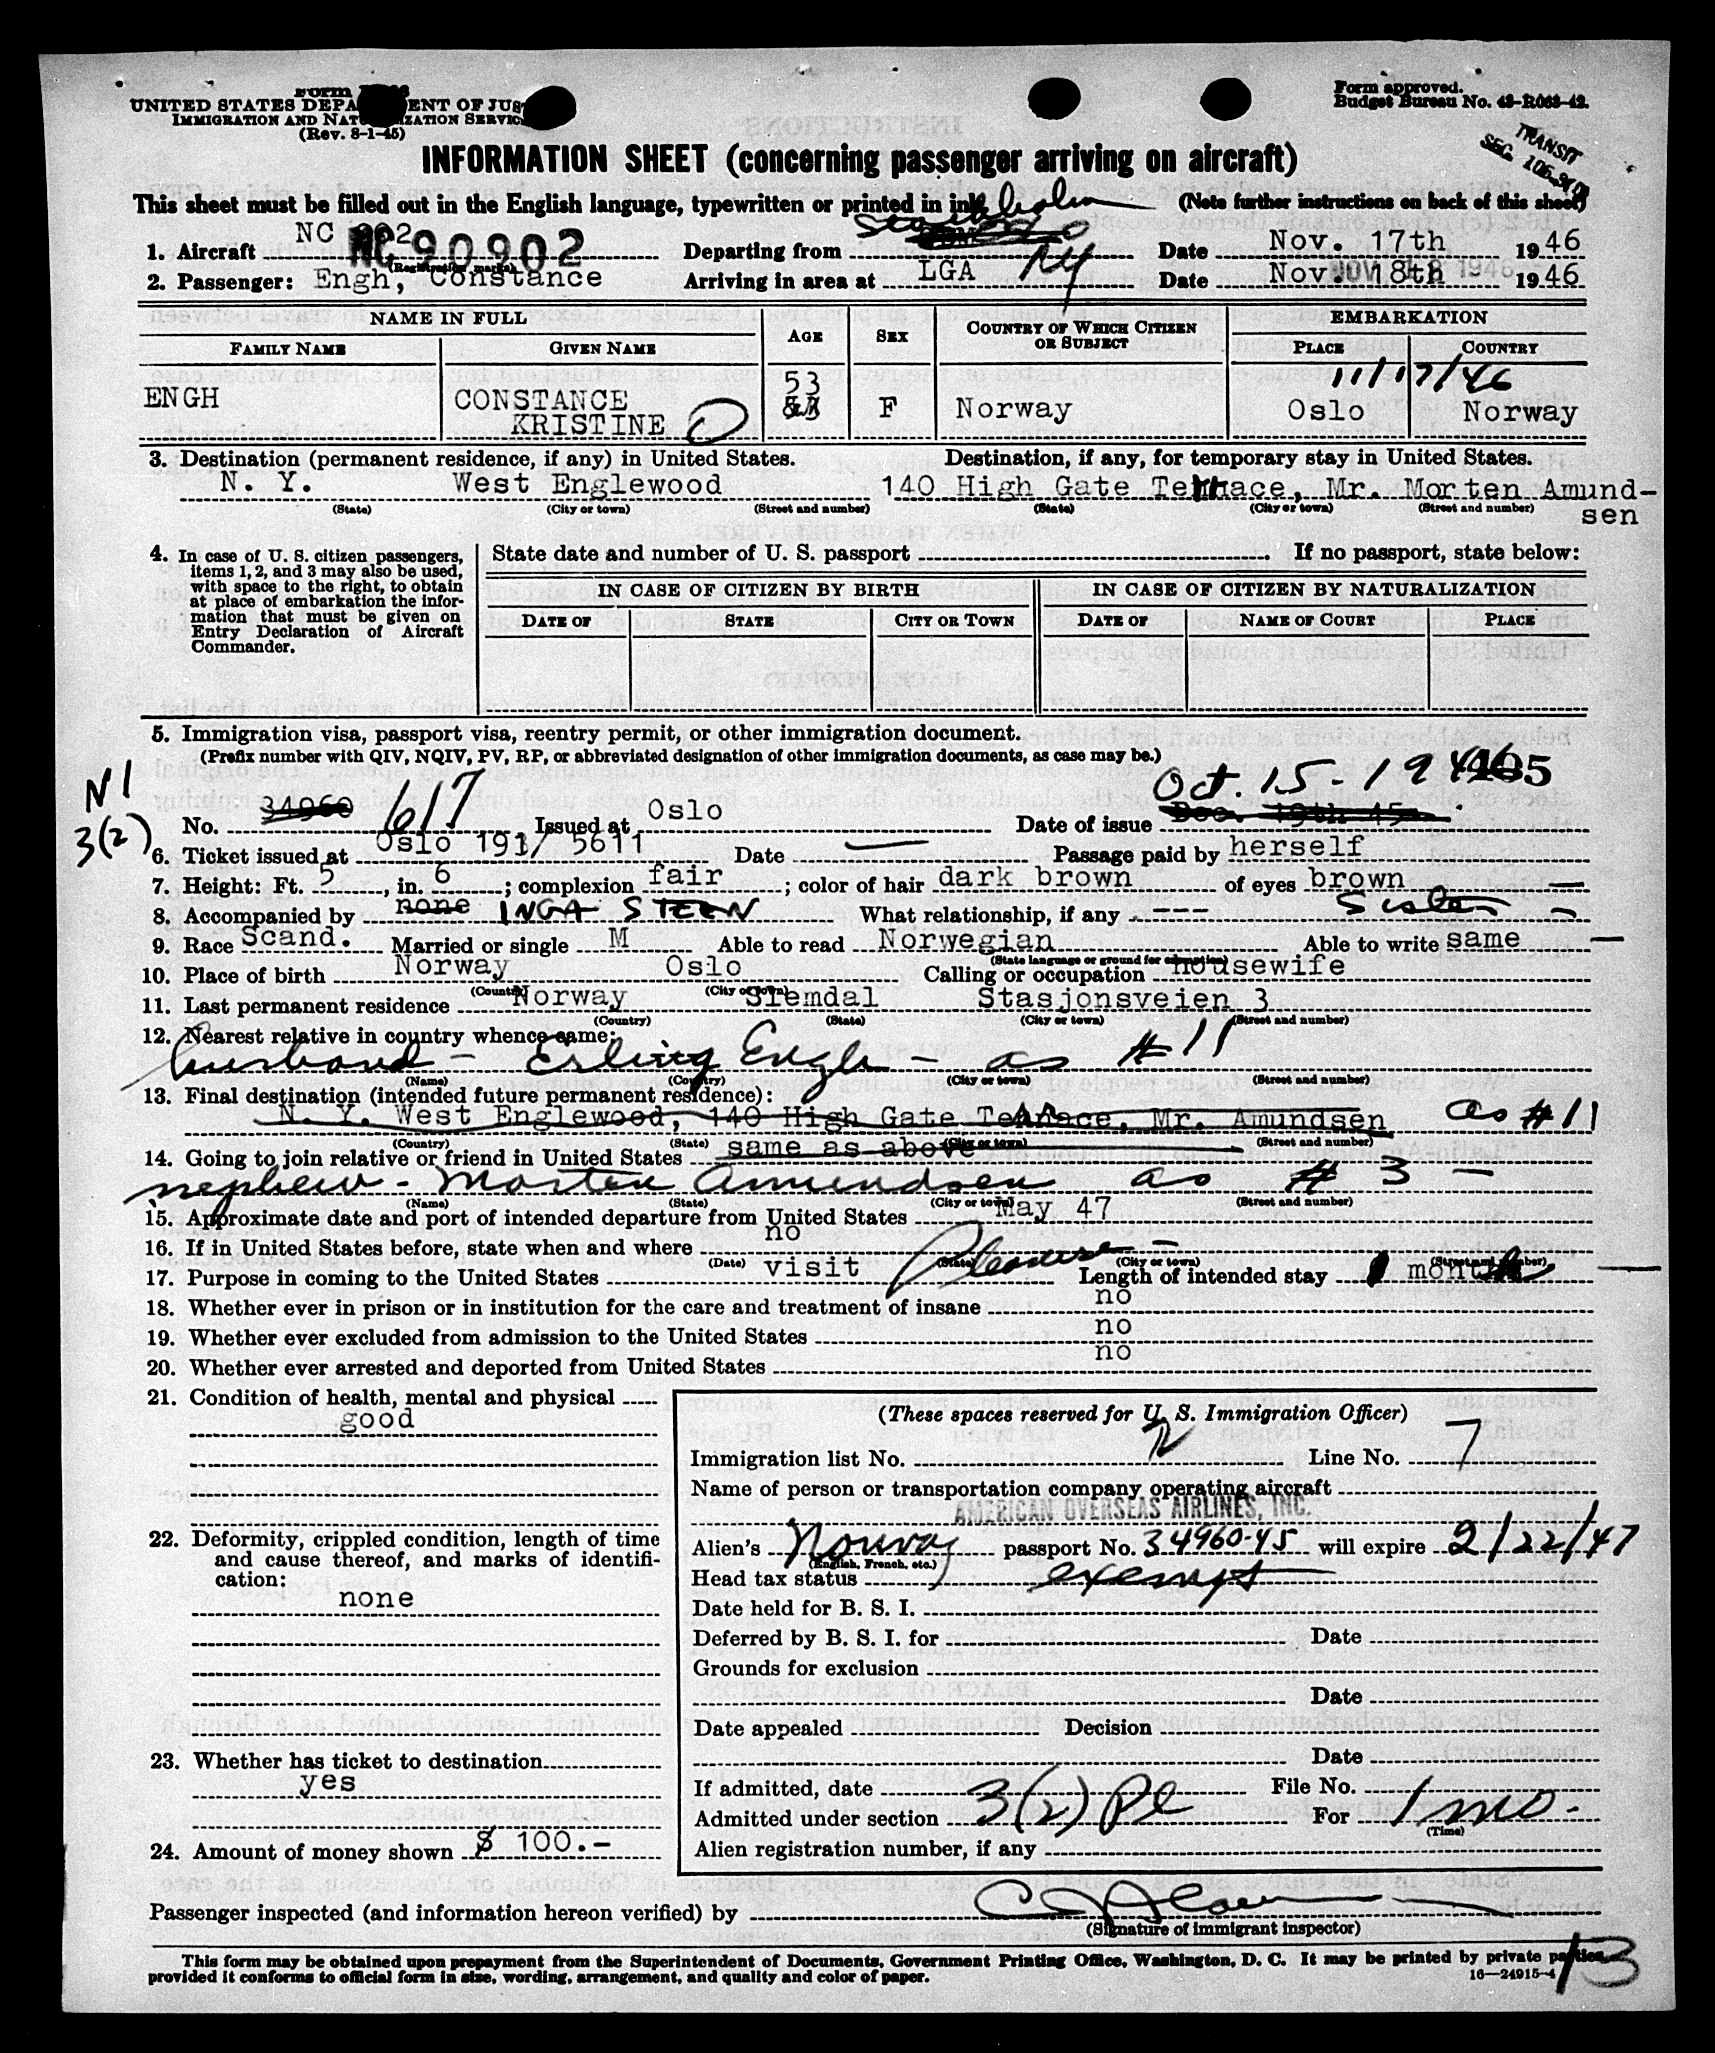 UNITED STATES DEPA ENT OF JUS
IMMIGRATION AND NAT IZATION SERVIC
(Rev. 8-1-45)
Form approved.
Budget Bureau No. 43-R063-42.
TRANSIT
SEC.
INFORMATION SHEET (concerning passenger arriving on aircraft)
This sheet must be filled out in the English language, typewritten or printed in ink. (Note further instructions on back of this sheet)
Stockholm
1. Aircraft NC 902 NC90902 Departing from Oslo Date Nov. 17th 1946
(Registration marks)
2. Passenger: Engh, Constance Arriving in area at LGA NY Date Nov. 18th 1946
NOV 18 1946
NAME IN FULL AGE SEX COUNTRY OF WHICH CITIZEN OR SUBJECT EMBARKATION
FAMILY NAME GIVEN NAME PLACE COUNTRY
11/17/46
ENGH CONSTANCE KRISTINE 53 F Norway Oslo Norway
3. Destination (permanent residence, if any) in United States. Destination, if any, for temporary stay in United States.
N. Y. West Englewood 140 High Gate Terrace, Mr. Morten Amund-
(State) (City or town) (Street and number) (State) (City or town) (Street and number)
sen
4. In case of U. S. citizen passengers,
items 1, 2, and 3 may also be used,
with space to the right, to obtain
at place of embarkation the infor-
mation that must be given on
Entry Declaration of Aircraft
Commander.
State date and number of U. S. passport If no passport, state below:
IN CASE OF CITIZEN BY BIRTH IN CASE OF CITIZEN BY NATURALIZATION
DATE OF STATE CITY OR TOWN DATE OF NAME OF COURT PLACE
5. Immigration visa, passport visa, reentry permit, or other immigration document.
(Prefix number with QIV, NQIV, PV, RP, or abbreviated designation of other immigration documents, as case may be.)
N1
3(2)
Oct. 15-1946
No. 34960 617 Issued at Oslo Date of issue Dec. 19th 45
6. Ticket issued at Oslo 191/ 5611 Date — Passage paid by herself
7. Height: Ft. 5, in. 6; complexion fair; color of hair dark brown of eyes brown
8. Accompanied by none INGA STEEN What relationship, if any --- Sister
9. Race Scand. Married or single M Able to read Norwegian Able to write same
(State language or ground for exemption)
10. Place of birth Norway Oslo Calling or occupation housewife
(Country) (City or town)
11. Last permanent residence Norway Slemdal Stasjonsveien 3
(Country) (State) (City or town) (Street and number)
12. Nearest relative in country whence came:
husband - Erling Engh - as #11
(Name) (Country) (City or town) (Street and number)
13. Final destination (intended future permanent residence):
N. Y. West Englewood, 140 High Gate Terrace, Mr. Amundsen as #11
(Country) (State) (City or town) (Street and number)
14. Going to join relative or friend in United States same as above
nephew - Morten Amundsen as #3 -
(Name) (State) (City or town) (Street and number)
15. Approximate date and port of intended departure from United States May 47
16. If in United States before, state when and where no
(Date) (State) (City or town) (Street and number)
17. Purpose in coming to the United States visit Pleasure - Length of intended stay 1 month
18. Whether ever in prison or in institution for the care and treatment of insane no
19. Whether ever excluded from admission to the United States no
20. Whether ever arrested and deported from United States no
21. Condition of health, mental and physical
good
22. Deformity, crippled condition, length of time
and cause thereof, and marks of identifi-
cation:
none
23. Whether has ticket to destination
yes
24. Amount of money shown $ 100.-
(These spaces reserved for U. S. Immigration Officer)
Immigration list No. 2 Line No. 7
Name of person or transportation company operating aircraft
AMERICAN OVERSEAS AIRLINES, INC.
Alien's Norway passport No. 34960-45 will expire 2/22/47
(English, French, etc.)
Head tax status exempt
Date held for B. S. I.
Deferred by B. S. I. for Date
Grounds for exclusion
Date
Date appealed Decision
Date
If admitted, date File No.
Admitted under section 3(2) Pl For 1 mo.
(Time)
Alien registration number, if any
Passenger inspected (and information hereon verified) by
(Signature of immigrant inspector)
This form may be obtained upon prepayment from the Superintendent of Documents, Government Printing Office, Washington, D. C. It may be printed by private parties
provided it conforms to official form in size, wording, arrangement, and quality and color of paper.
16—24915-4
13